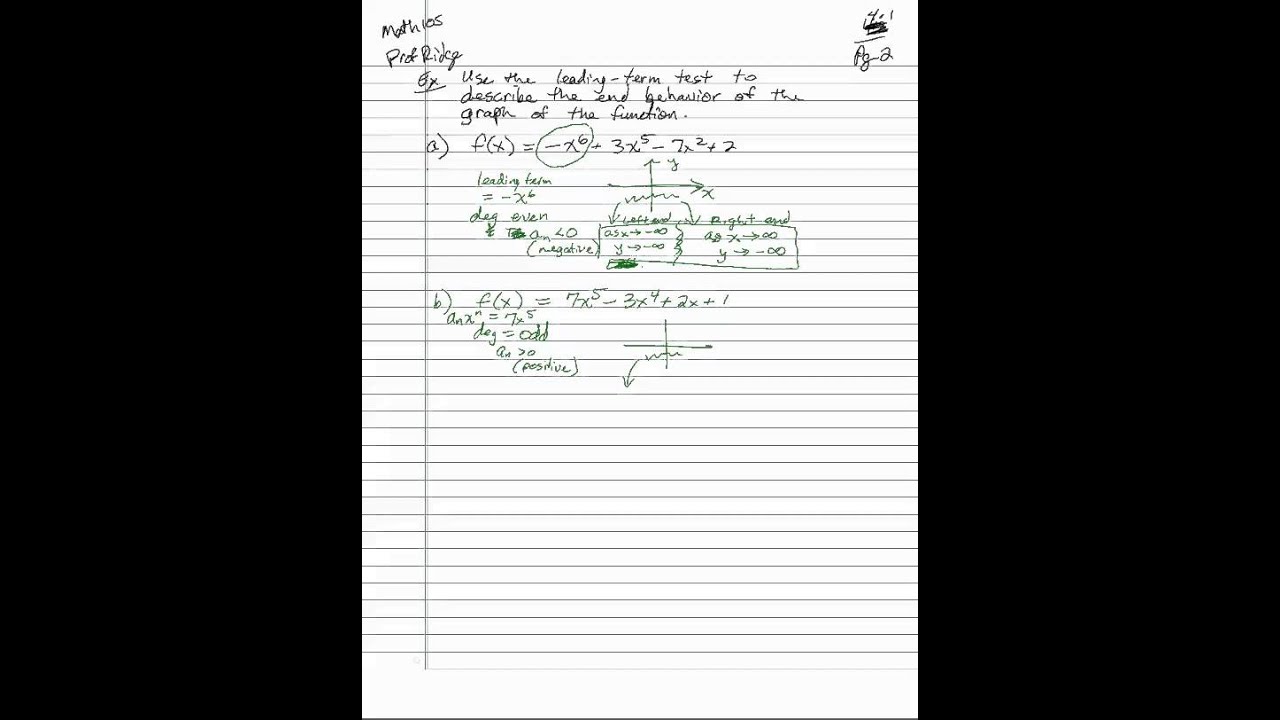 Math 105
4.1
Prof Ridge
Pg-2
Ex Use the leading-term test to
describe the end behavior of the
graph of the function.
a) f(x) = -x⁶ + 3x⁵ - 7x² + 2
y
leading term
= -x⁶
x
deg even
Left end Right end
aₙ < 0
as x → -∞ as x → ∞
(negative)
y → -∞ y → -∞
b) f(x) = 7x⁵ - 3x⁴ + 2x + 1
aₙxⁿ = 7x⁵
deg = odd
aₙ > 0
(positive)